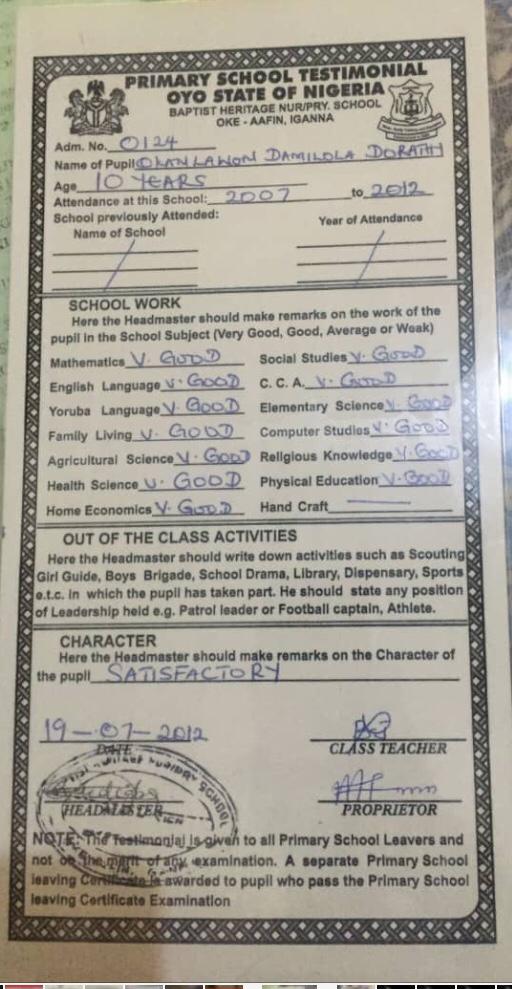 PRIMARY SCHOOL TESTIMONIAL
OYO STATE OF NIGERIA
BAPTIST HERITAGE NUR/PRY. SCHOOL
OKE - AAFIN, IGANNA
Adm. No. 0124
Name of Pupil OLANLAWON DAMILOLA DORATHY
Age 10 YEARS
Attendance at this School: 2007 to 2012
School previously Attended: Year of Attendance
Name of School
SCHOOL WORK
Here the Headmaster should make remarks on the work of the
pupil in the School Subject (Very Good, Good, Average or Weak)
Mathematics V. GOOD Social Studies V. GOOD
English Language V. GOOD C. C. A. V. GOOD
Yoruba Language V. GOOD Elementary Science V. GOOD
Family Living V. GOOD Computer Studies V. GOOD
Agricultural Science V. GOOD Religious Knowledge V. GOOD
Health Science V. GOOD Physical Education V. GOOD
Home Economics V. GOOD Hand Craft
OUT OF THE CLASS ACTIVITIES
Here the Headmaster should write down activities such as Scouting
Girl Guide, Boys Brigade, School Drama, Library, Dispensary, Sports
e.t.c. in which the pupil has taken part. He should state any position
of Leadership held e.g. Patrol leader or Football captain, Athlete.
CHARACTER
Here the Headmaster should make remarks on the Character of
the pupil SATISFACTORY
19-07-2012
DATE CLASS TEACHER
HEADMASTER PROPRIETOR
NOTE: The Testimonial is given to all Primary School Leavers and
not on the merit of any examination. A separate Primary School
leaving Certificate is awarded to pupil who pass the Primary School
leaving Certificate Examination